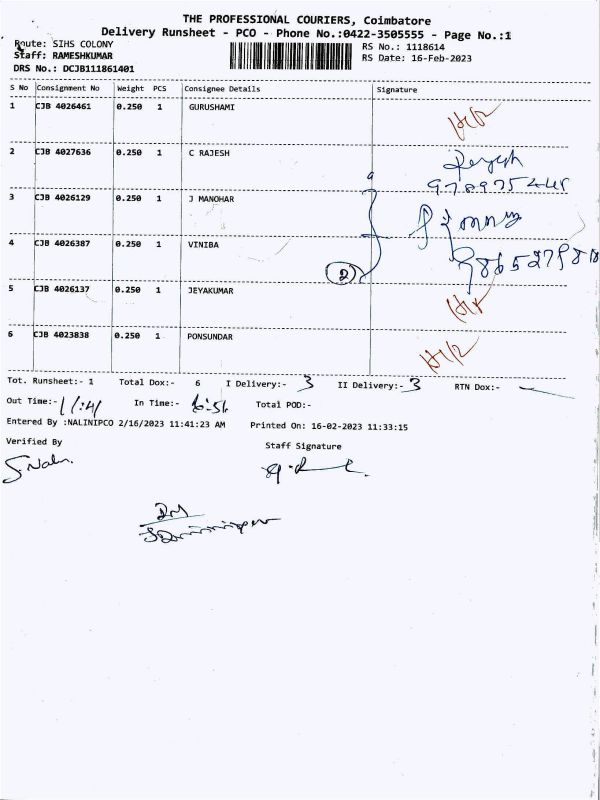 THE PROFESSIONAL COURIERS, Coimbatore
Delivery Runsheet - PCO - Phone No.:0422-3505555 - Page No.:1
Route: SIHS COLONY
RS No.: 1118614
Staff: RAMESHKUMAR
RS Date: 16-Feb-2023
DRS No.: DCJB111861401
S No Consignment No Weight PCS Consignee Details Signature
1 CJB 4026461 0.250 1 GURUSHAMI
2 CJB 4027636 0.250 1 C RAJESH
3 CJB 4026129 0.250 1 J MANOHAR
4 CJB 4026387 0.250 1 VINIBA
2
5 CJB 4026137 0.250 1 JEYAKUMAR
6 CJB 4023838 0.250 1 PONSUNDAR
Tot. Runsheet:- 1 Total Dox:- 6 I Delivery:- 3 II Delivery:- 3 RTN Dox:- —
Out Time:- 11:41 In Time:- 6:51 Total POD:-
Entered By :NALINIPCO 2/16/2023 11:41:23 AM Printed On: 16-02-2023 11:33:15
Verified By Staff Signature